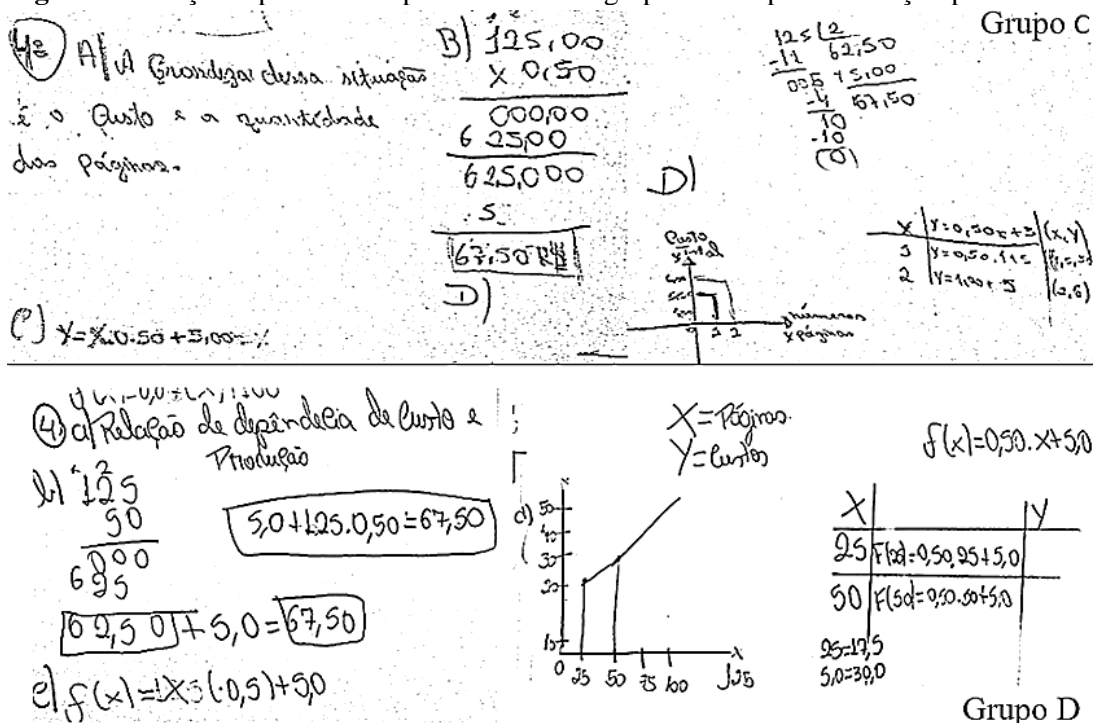 Grupo C
4ª) A) A Grandezar dessa situação
é o Custo e a quantidade
das Páginas.
B) 125,00
x 0,50
000,00
625,00
625,000
5
67,50 R$
D)
C) y=x.0.50+5,00=
125 2
-11 62,50
005 +5,00
-4 67,50
10
-10
(0)
D)
Custo
números
x páginas
0 1 2
x y=0,50x+5 (x,y)
y=0,50.1+5
2 y=1,00+5 (2,6)
4) a) Relação de dependecia de Custo e
Produção
b) 125
50
000
625
62,50+5,0=67,50
5,0+125.0,50=67,50
X=Páginas
Y=Custos
f(x)=0,50.x+5,0
d) 50
40
30
20
10
0 25 50 75 100 125
x
X Y
25 F(25)=0,50.25+5,0
50 F(50)=0,50.50+5,0
25=17,5
5,0=30,0
Grupo D